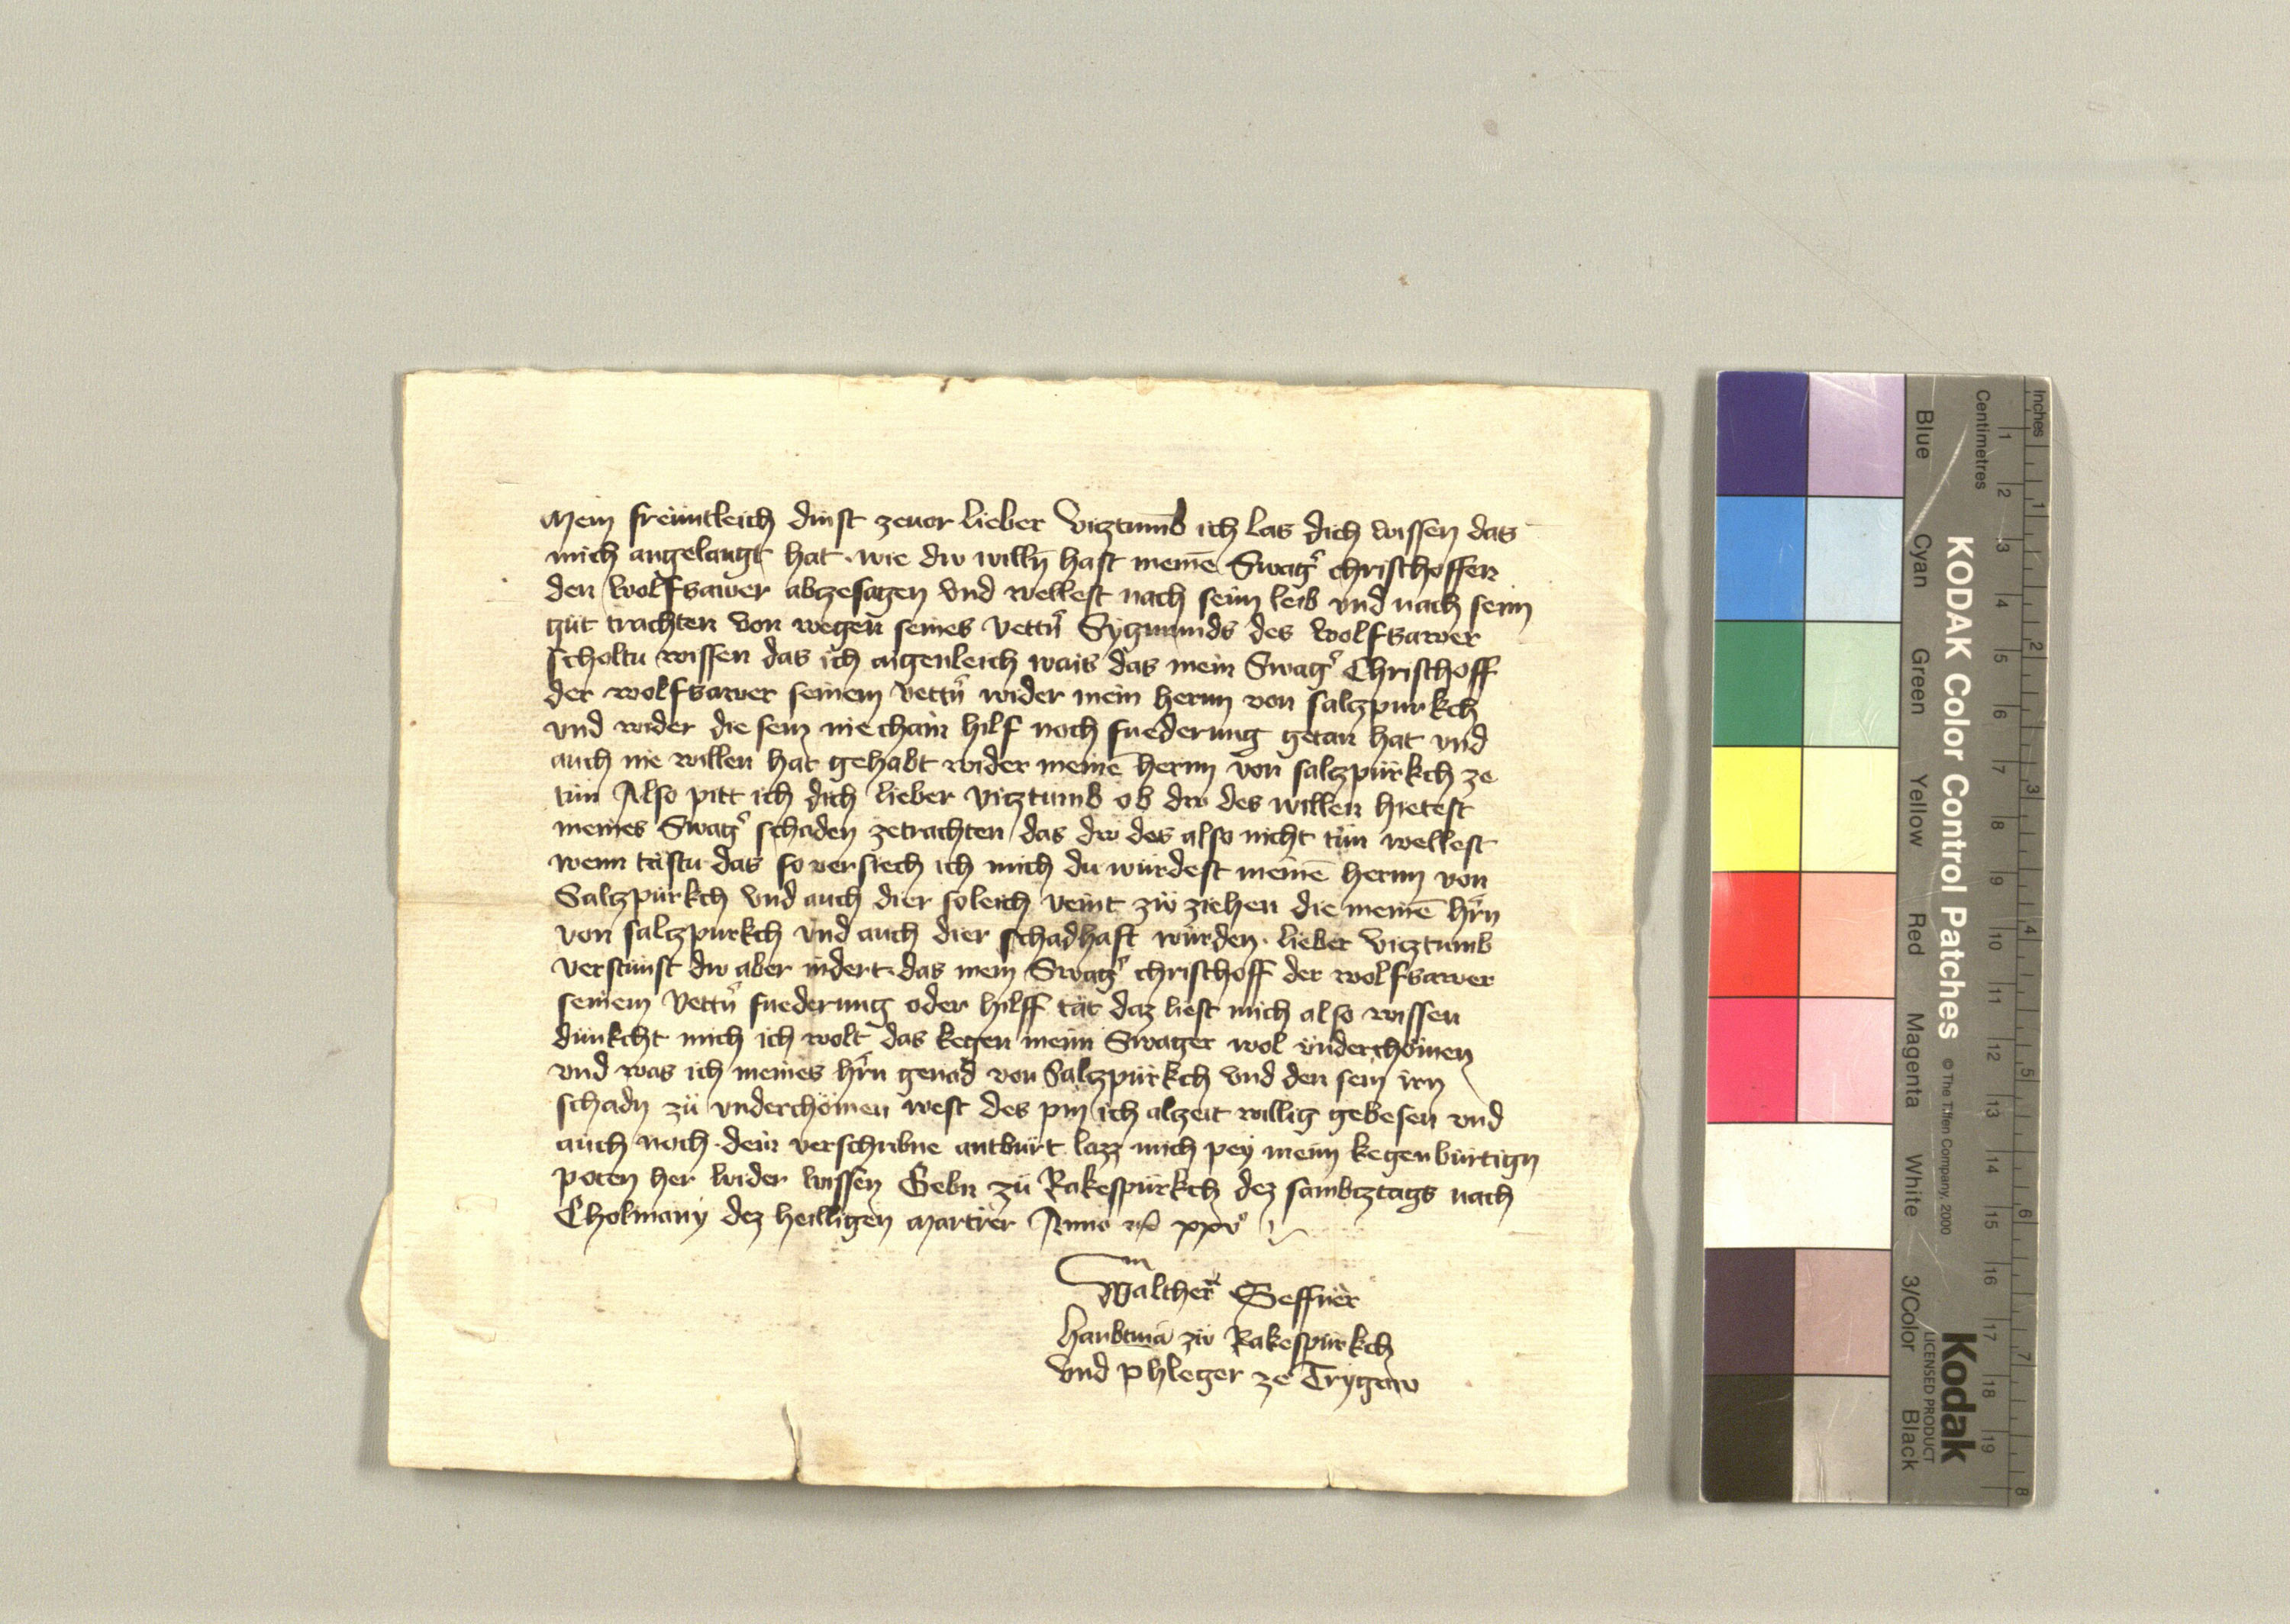 Mein frewntleich dinst zeuor lieber Vicztumb ich las dich wissen das
mich angelangt hat · wie dw willn̄ hast meinē Swagr̄ christhoffen
den Wolfsawer abczesagen vnd wellest nach seim leib vnd nach seim
gut trachten von wegen seines vettn̄ Sygmunds des wolfsawer
scholtu wissen das ich aigenleich wais das mein Swagr̄ Christhoff
der wolfsawer seinem vettn̄ wider mein hernn von salczpurkch
vnd wider die sein nie chain hilf noch fuederung getan hat vnd
auch nie willen hat gehabt wider meinē hernn von salczpürkch ze
tün Also pitt ich dich lieber vicztumb ob dw des willen hietest
meines Swagr̄ schaden zetrachten das dw des also nicht tün wellest
wenn tästu das so versiech ich mich du würdest meinē hernn von
Salczpürkch vnd auch dier soleich veint zw̄ ziehen die meinē hr̄n
von salczpurkch vnd auch dier schadhaft würden · lieber vicztumb
verstünst dw aber indert das mein Swagr̄ christhoff der wolfsawer
seinem vettn̄ fuederung oder hilff tät daz liest mich also wissen
dünkcht mich ich wolt das kegen meim Swager wol vnderchömen
vnd was ich meines hr̄n genad von Salczpürkch vnd den sein irn
schadn zü vnderchömen west des pin ich alczeit willig gebesen vnd
auch noch · dein verschribne antbürt lazz mich pey meim kegenbürtign
poten her wider wissen Gebn zü Rakespürkch dez sambcztags nach
Cholmany dez heilligen martrer Anno xxv°
Walther Seffner
haubtmā zw̄ Rakespürkch
vnd phleger ze Trygaw
KODAK Color Control Patches
© The Tiffen Company, 2000
Kodak
LICENSED PRODUCT
Inches
1 2 3 4 5 6 7 8
Centimetres
1 2 3 4 5 6 7 8 9 10 11 12 13 14 15 16 17 18 19
Blue
Cyan
Green
Yellow
Red
Magenta
White
3/Color
Black